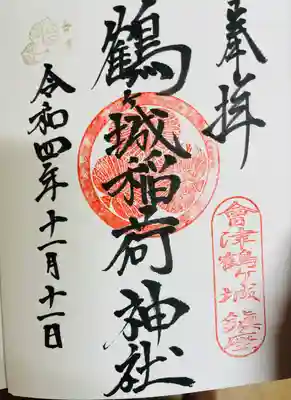 奉拝
會津鶴ヶ城鎮守
鶴ヶ城稲荷神社
令和四年十一月十一日